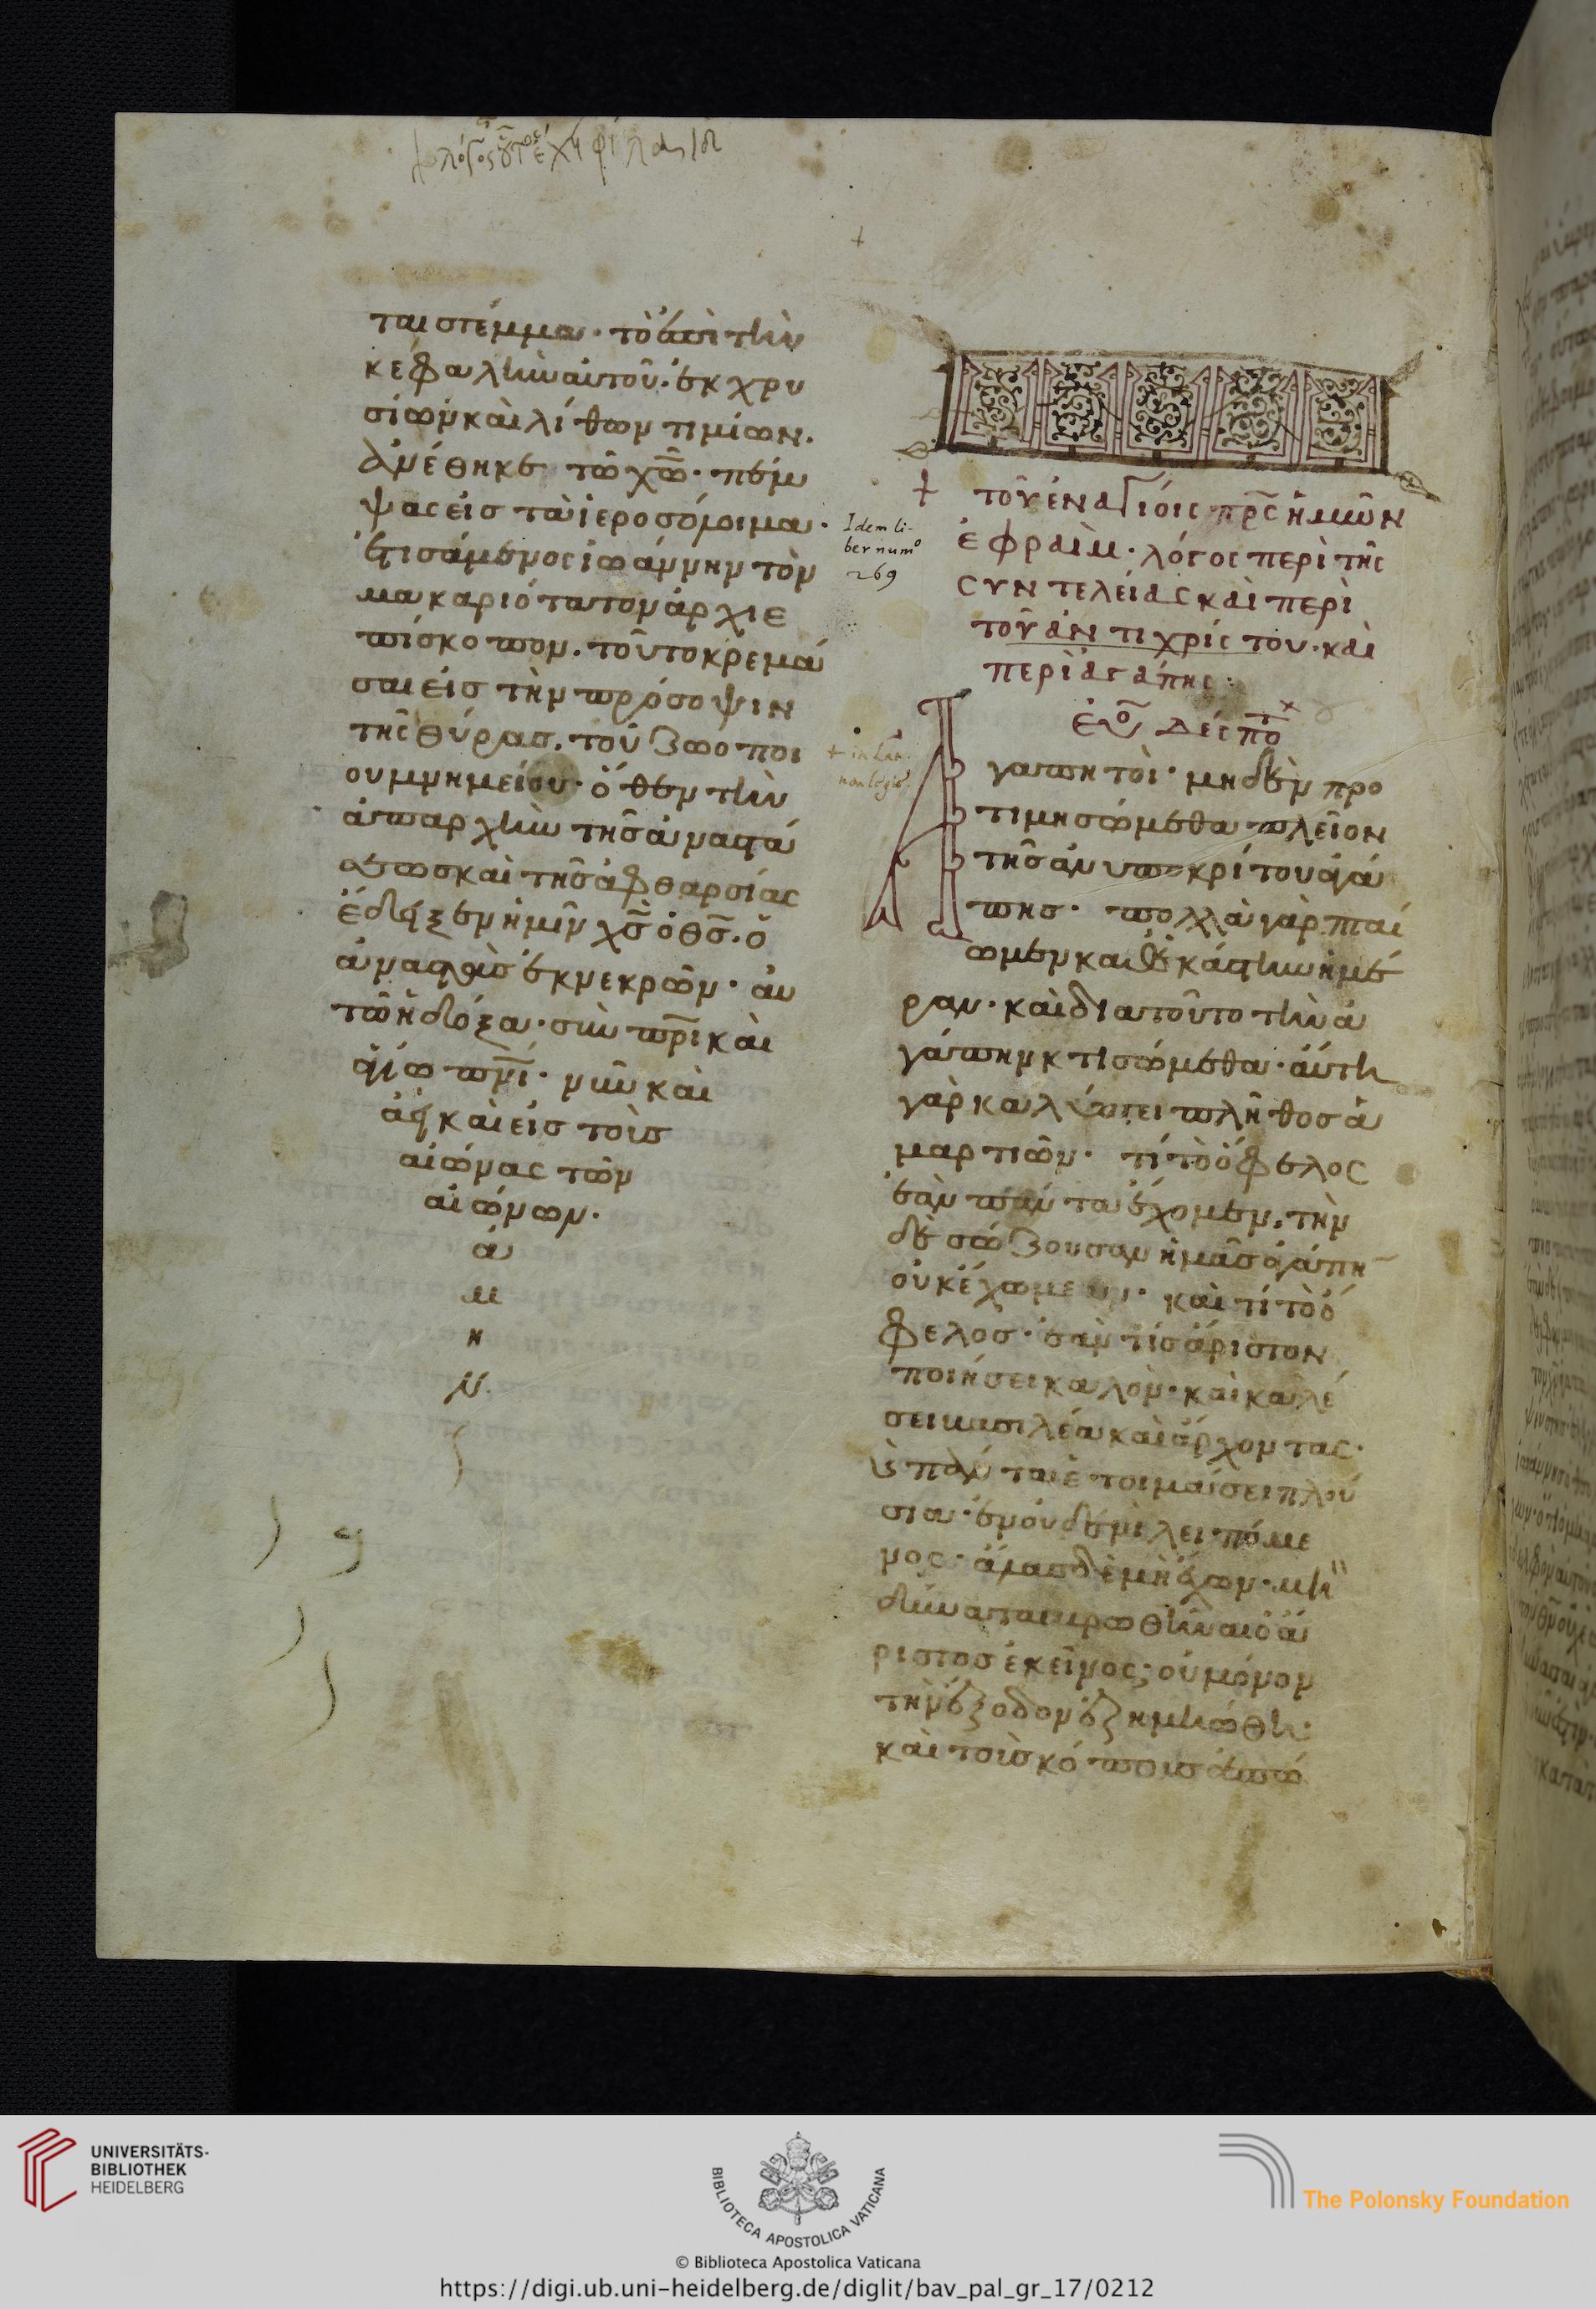 ται στέμμα· τὸ ἐπὶ τὴν
κεφαλὴν αὐτοῦ. ἐκ χρυ
σίων καὶ λίθων τιμίων.
ἀνέθηκε τῶ χ̅ω̅· πέμ
ψας εἰς τὰ ἱεροσόλοιμα·
αἰτισάμενος ἰωάννην τὸν
μακαριότατον ἀρχιε
πίσκοπον. τοῦτο κρεμά
σαι εἰς τὴν πρόσοψιν
τῆς θύρας. τοῦ ζωοποι
οῦ μνημείου· ὅθεν τὴν
ἀπαρχὴν τῆς ἀναστά
σεως καὶ τῆς ἀφθαρσίας
ἔδειξεν ἡμῖν χ̅ς̅ ὁ θ̅ς̅. ὁ
ἀναστὰς ἐκ νεκρῶν· αὐ
τῶ ἡ δόξα· σὺν π̅ρ̅ι̅ καὶ
ἁγίω π̅ν̅ι̅· νῦν καὶ
ἀεὶ καὶ εἰς τοὺς
αἰῶνας τῶν
αἰώνων.
ἀ
μ
η
ν.
Idem li-
ber num°
269
τοῦ ἐν ἁγίοις π̅ρ̅ς̅ ἡμῶν
ἐφραὶμ· λόγος περὶ τῆς
συντελείας καὶ περὶ
τοῦ ἀντιχρίστου· καὶ
περὶ ἀγάπης:
εὐλο δέσπο
Ἀγαπητοὶ· μηδὲν προ
τιμησώμεθα πλεῖον
τῆς ἀνυποκρίτου ἀγά
πης· πολλὰ γὰρ πταί
ωμεν καθεκάστην ἡμέ
ραν· καὶ διατοῦτο τὴν ἀ
γάπην κτισώμεθα· αὕτη
γὰρ καλύπτει πλῆθος ἁ
μαρτιῶν· τί τὸ ὄφελος
ἐὰν πάντα ἔχομεν, τὴν
δὲ σώζουσαν ἡμᾶς ἀγάπην
οὐκ ἔχωμεν· καὶ τί τὸ ὄ
φελος· ἐάν τις ἄριστον
ποιήσει καλὸν· καὶ καλέ
σει βασιλέα καὶ ἄρχοντας·
καὶ πάντα ἑτοιμάσει πλού
σια· ἐν οὐδενὶ λειπόμε
νος· ἅλας δὲ μὴ ἔχων· μὴ
δύναται βρωθῆναι ὁ ἄ
ριστος ἐκεῖνος; οὐ μόνον
τὴν ἔξοδον ἐζημιώθη·
καὶ τοὺς κόπους ἀπώ
UNIVERSITÄTS-
BIBLIOTHEK
HEIDELBERG
BIBLIOTECA APOSTOLICA VATICANA
The Polonsky Foundation
© Biblioteca Apostolica Vaticana
https://digi.ub.uni-heidelberg.de/diglit/bav_pal_gr_17/0212